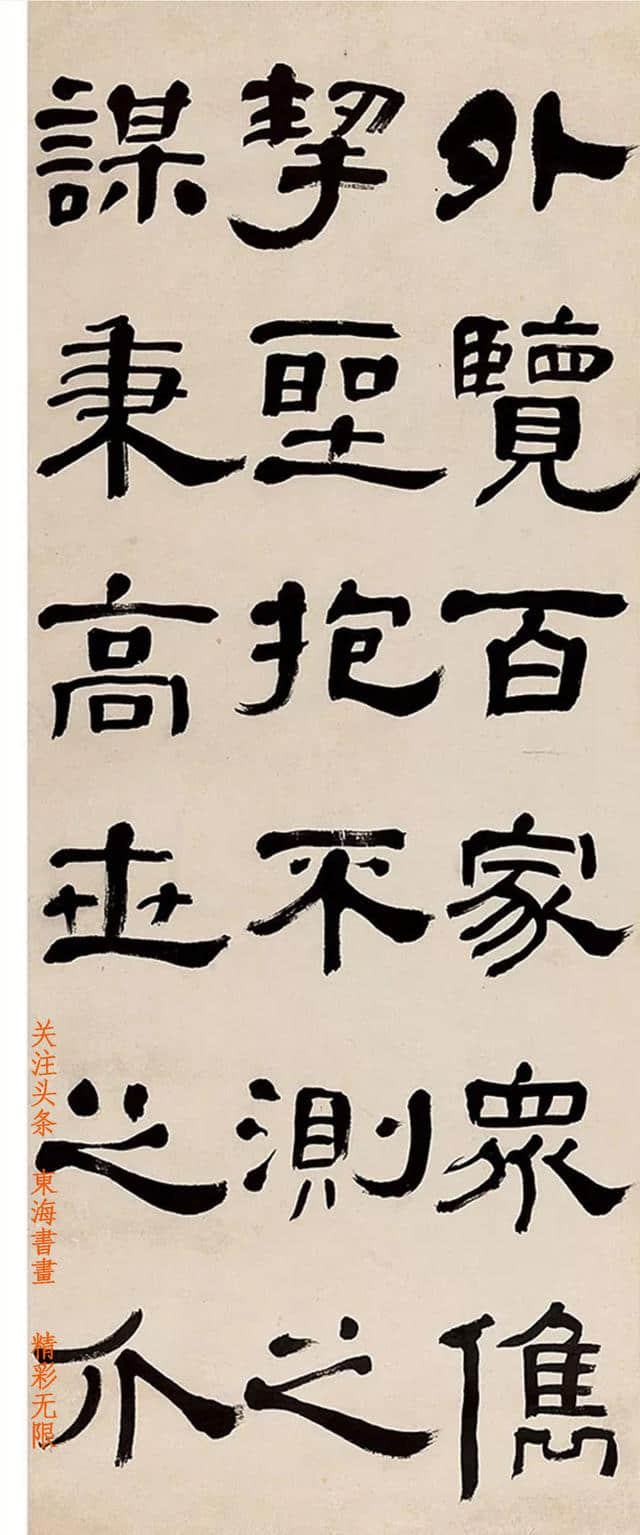 外覽百家眾儁
挈聖抱不測之
謀秉高世之介
关注头条 東海書畫 精彩无限